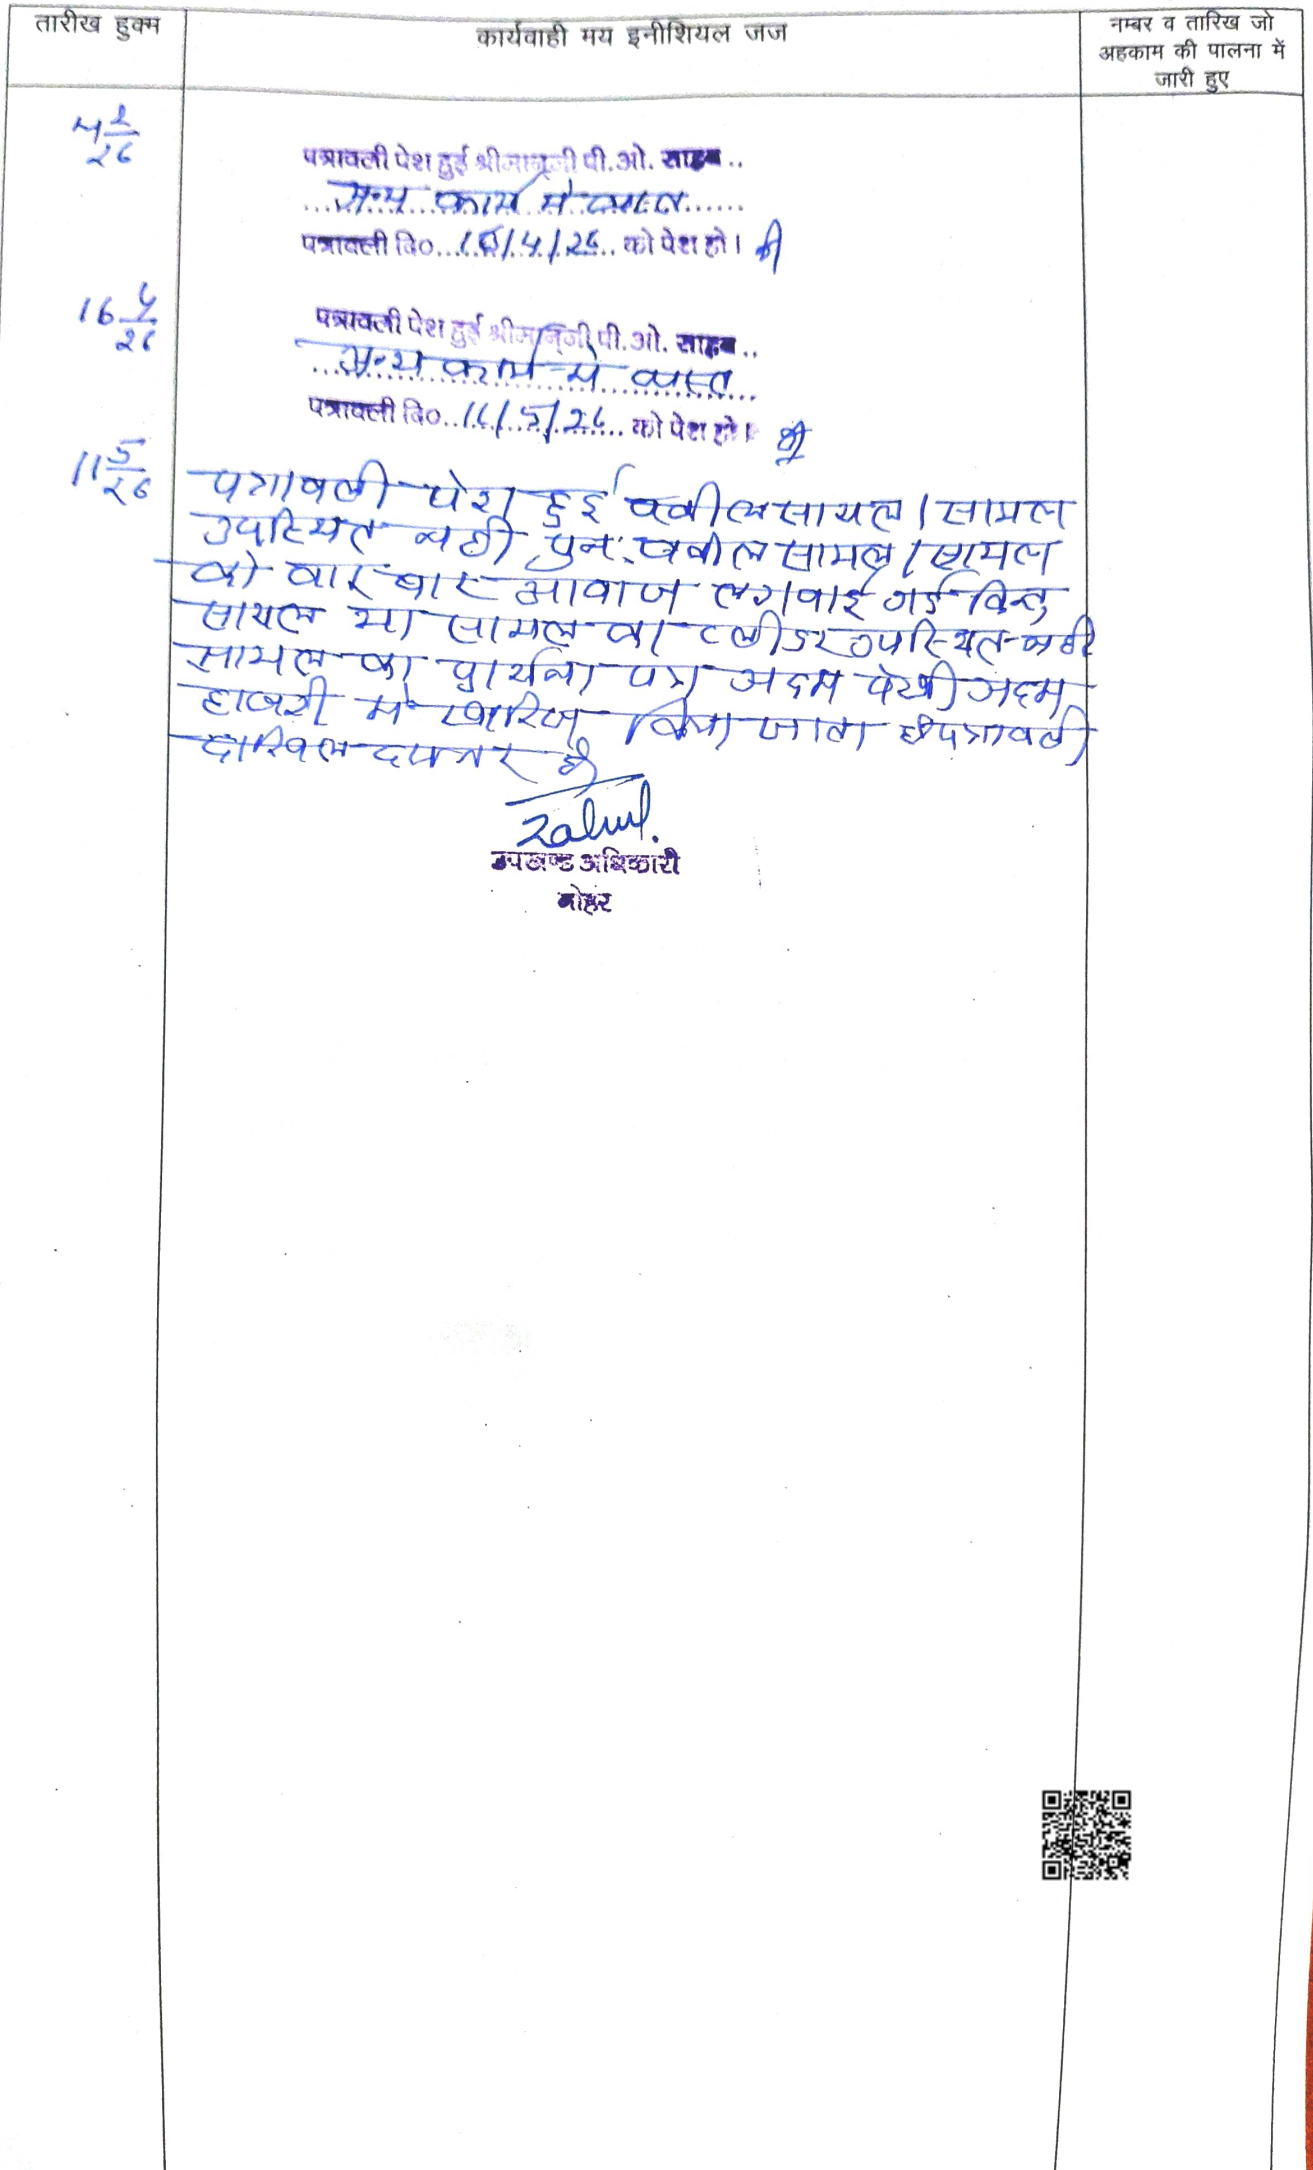 तारीख हुक्म
कार्यवाही मय इनीशियल जज
नम्बर व तारिख जो
अहकाम की पालना में
जारी हुए
4 2/26
पत्रावली पेश हुई श्रीमान्जी पी.ओ. साहब..
अन्य कार्य में व्यस्त
पत्रावली दि०...16/4/26.. को पेश हो।
16 4/26
पत्रावली पेश हुई श्रीमान्जी पी.ओ. साहब..
अन्य कार्य में व्यस्त
पत्रावली दि०..11/5/26.. को पेश हो।
11 5/26
पत्रावली पेश हुई वकील सायल / सायल
उपस्थित नही पुनः वकील सायल / सायल
को बार बार आवाज लगवाई गई किन्तु
सायल या सायल का प्लीडर उपस्थित नही
सायल का प्रार्थना पत्र अदम पेरवी अदम
हाजरी मे खारिज किया जाता है पत्रावली
दाखिल दफ्तर हो
उपखण्ड अधिकारी
नोहर